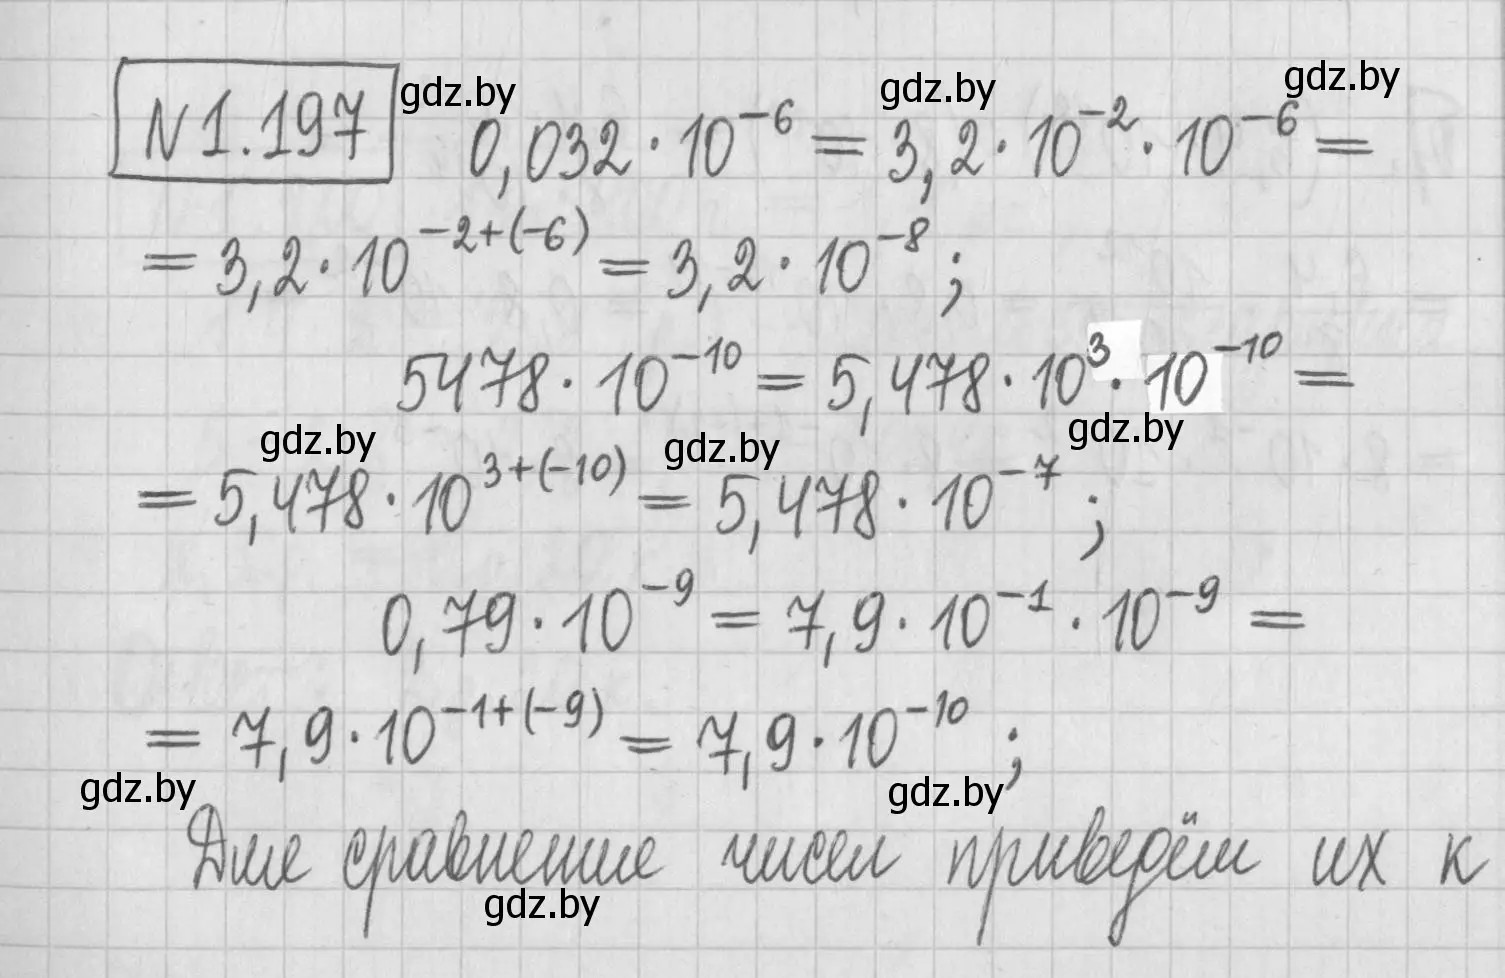 №1.197 gdz.by gdz.by gdz.by
0,032·10⁻⁶ = 3,2·10⁻²·10⁻⁶ =
= 3,2·10⁻²⁺⁽⁻⁶⁾ = 3,2·10⁻⁸;
5478·10⁻¹⁰ = 5,478·10³·10⁻¹⁰ =
gdz.by gdz.by gdz.by
= 5,478·10³⁺⁽⁻¹⁰⁾ = 5,478·10⁻⁷;
0,79·10⁻⁹ = 7,9·10⁻¹·10⁻⁹ =
= 7,9·10⁻¹⁺⁽⁻⁹⁾ = 7,9·10⁻¹⁰;
gdz.by gdz.by
Для сравнение чисел приведём их к
gdz.by